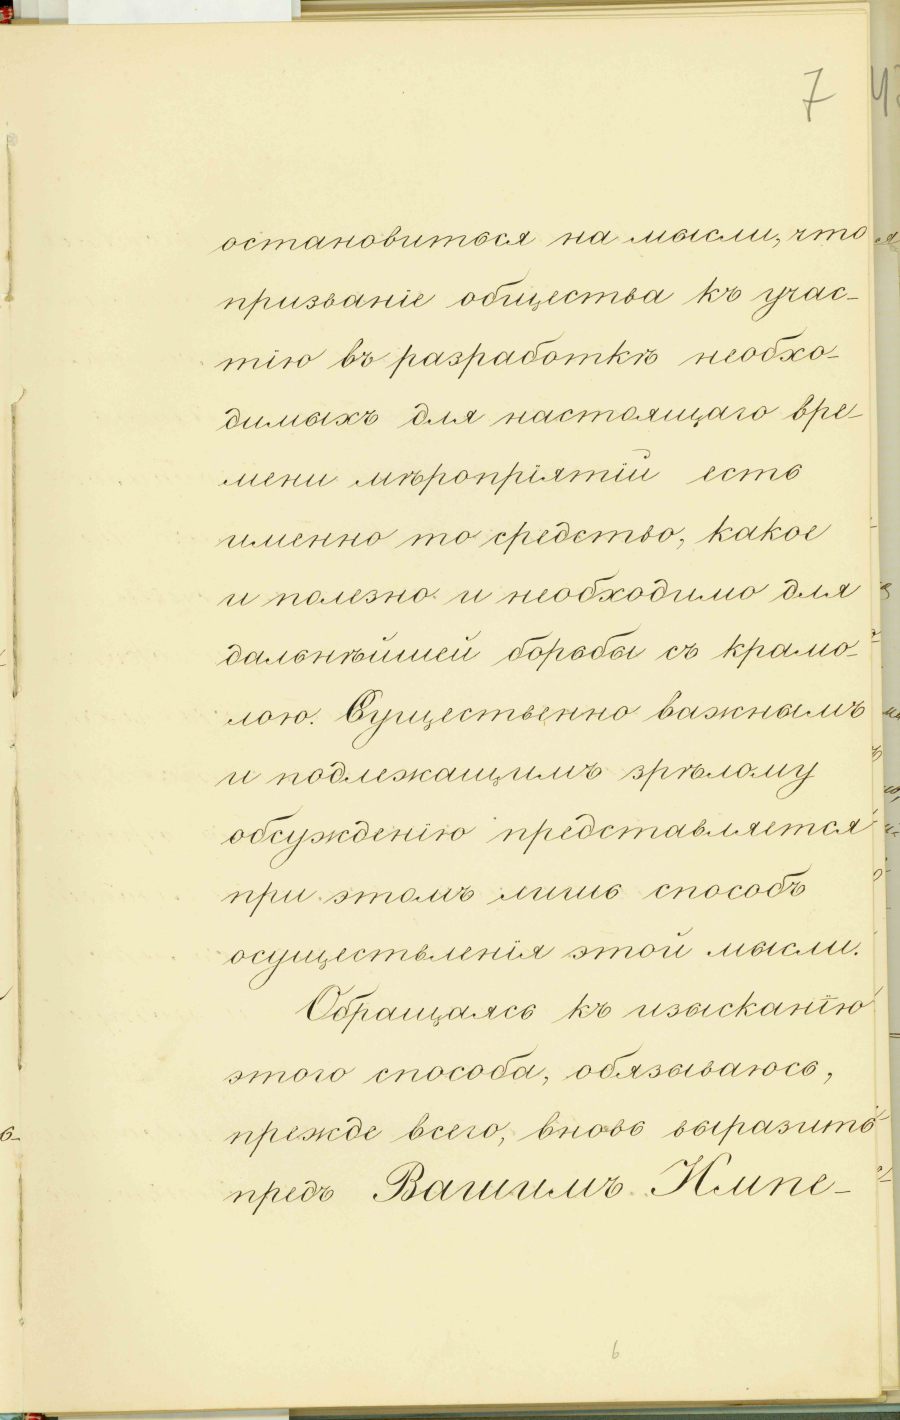 7
остановиться на мысли, что
призваніе общества къ учас-
тію въ разработкѣ необхо-
димыхъ для настоящаго вре-
мени мѣропріятій есть
именно то средство, какое
и полезно и необходимо для
дальнѣйшей борьбы съ крамо-
лою. Существенно важнымъ
и подлежащимъ зрѣлому
обсужденію представляется
при этомъ лишь способъ
осуществленія этой мысли.
Обращаясь къ изысканію
этого способа, обязываюсь,
прежде всего, вновь выразить
предъ Вашимъ Импе-
6